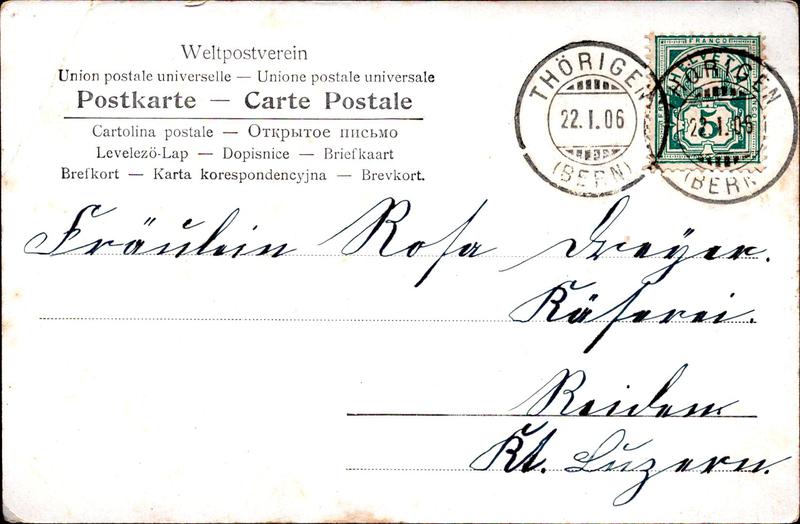 Weltpostverein
Union postale universelle — Unione postale universale
Postkarte — Carte Postale
Cartolina postale — Открытое письмо
Levelezö-Lap — Dopisnice — Briefkaart
Brefkort — Karta korespondencyjna — Brevkort.
THÖRIGEN
22.I.06
(BERN)
FRANCO
HELVETIA
5
THÖRIGEN
22.I.06
(BERN)
Fräulein Rosa Dreyer.
Käserei.
Reiden
Kt. Luzern.